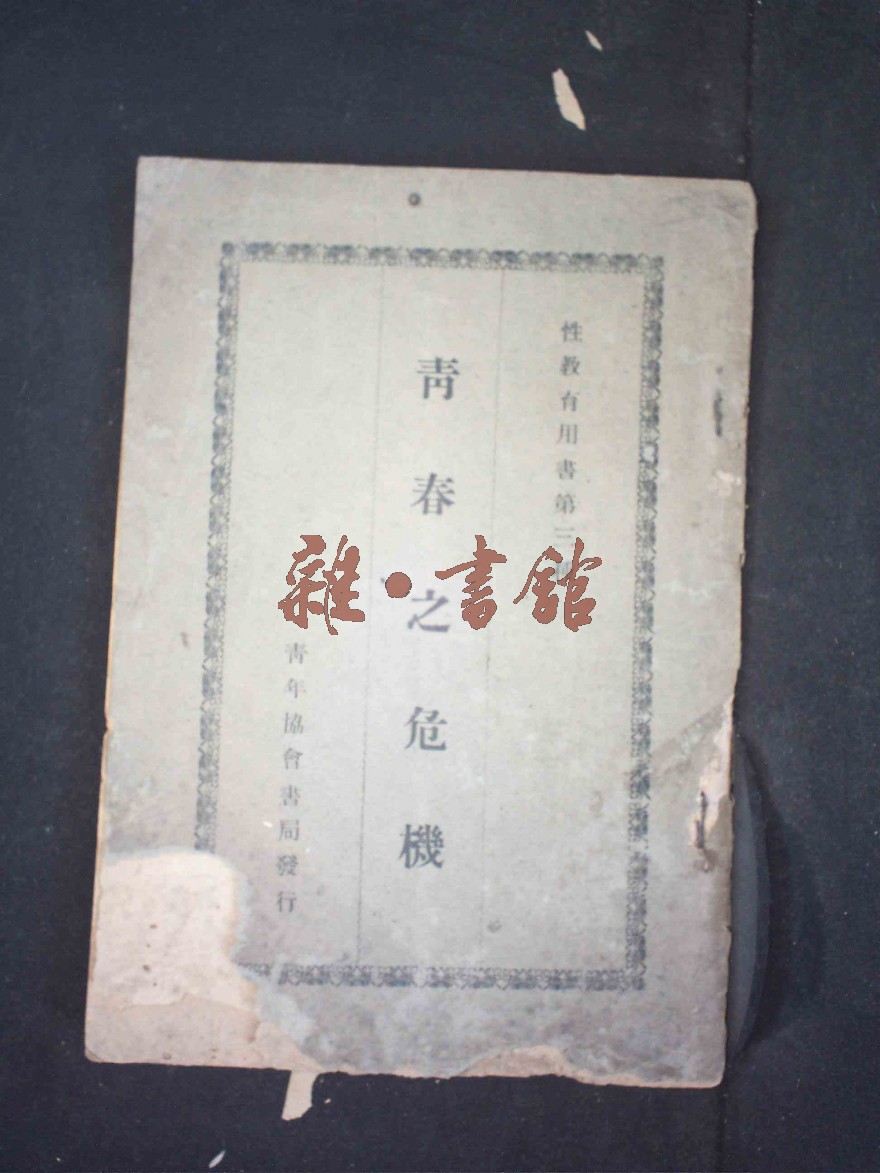 性教育用書第三
青春之危機
青年協會書局發行
雜·書館